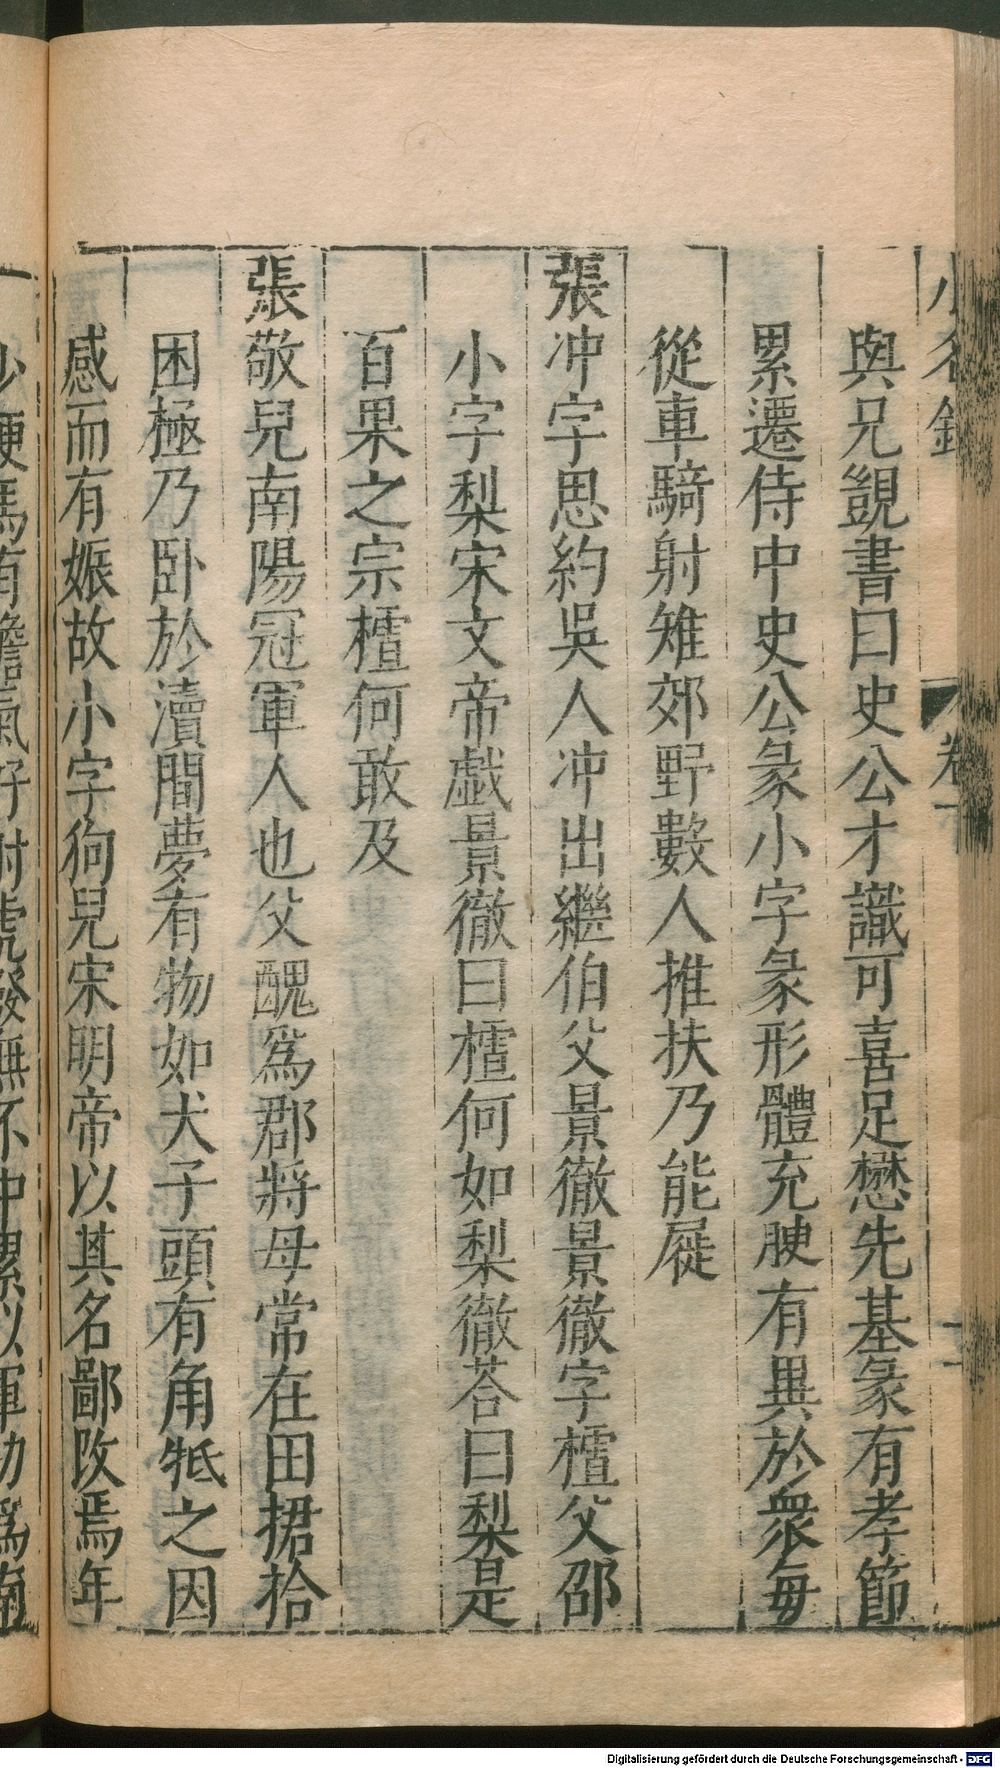 小名錄 卷下
與兄覬書曰史公才識可喜足懋先基彖有孝節
累遷侍中史公彖小字彖形體充腴有異於衆每
從車騎射雉郊野數人推扶乃能屣
張冲字思約吳人冲出繼伯父景徹景徹字樝父邵
小字梨宋文帝戲景徹曰樝何如梨徹荅曰梨是
百果之宗樝何敢及
張敬兒南陽冠軍人也父醜爲郡將母常在田捃拾
困極乃卧於瀆間夢有物如犬子頭有角牴之因
感而有娠故小字狗兒宋明帝以其名鄙改焉年
少便馬有膽氣好射虎發無不中累以軍功爲南
Digitalisierung gefördert durch die Deutsche Forschungsgemeinschaft - DFG